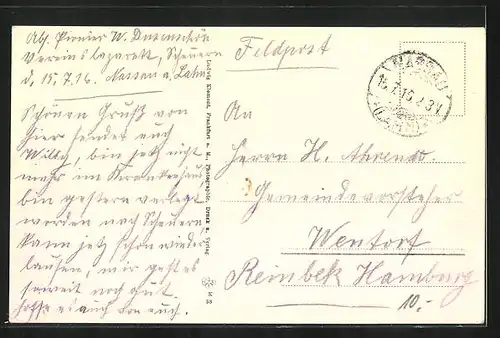 Abs. Pionier W. Dusenschön
Vereinslazarett, Scheuern
d. 15.7.16. Nassau a. Lahn
Feldpost
NASSAU
(LAHN)
Schönen Gruß von
hier sendet euch
Willy, bin jetzt nicht
mehr im Krankenhaus
bin gestern verlegt
worden nach Scheuern
kann jetz schon wieder
laufen, mir geht es
soweit noch gut
hoffe es auch von euch.
Ludwig Klement, Frankfurt a. M., Photographie, Druck u. Verlag
An
Herrn H. Ahrends
Gemeindevorsteher
Wentorf
Reinbek Hamburg
10.-